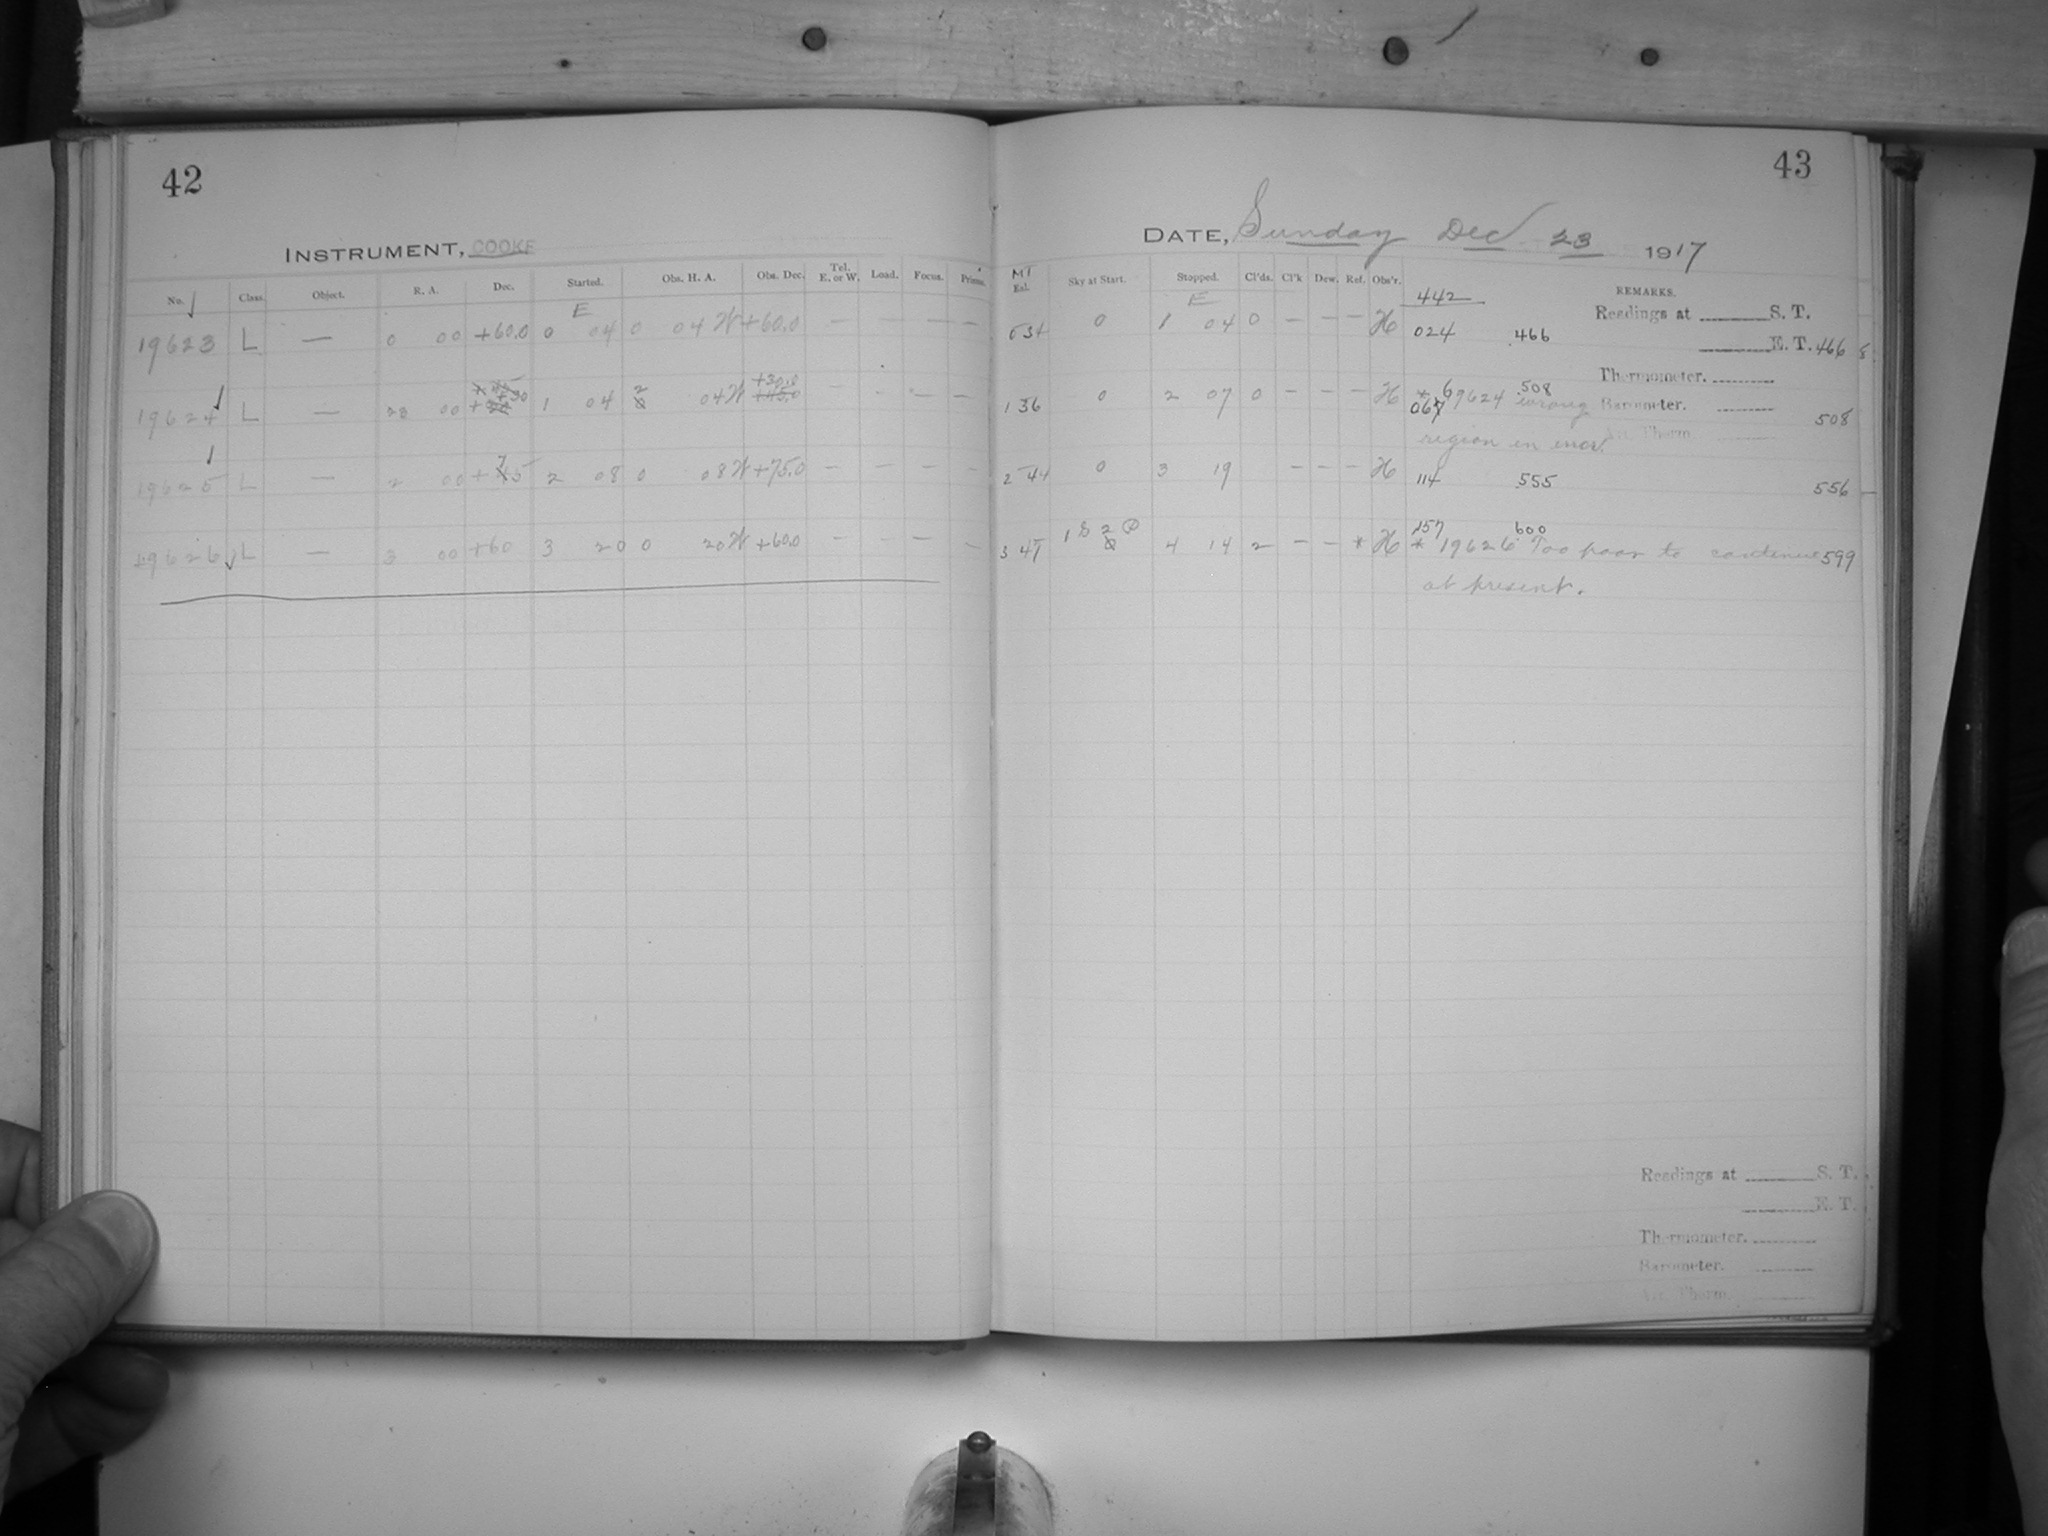 42
INSTRUMENT, COOKE
No. Class. Object. R. A. Dec. Started. Obs. H. A. Obs. Dec. Tel. E. or W. Load. Focus. Prisms.
E
19623 L — 0 00 +60.0 0 04 0 04 W +60.0 — — — —
+30.0
19624 L — 23 00 +30 1 04 2 04 W +45.0 — — — —
19625 L — 2 00 +75 2 08 0 08 W +75.0 — — — —
19626 L — 3 00 +60 3 20 0 20 W +60.0 — — — —
43
DATE, Sunday Dec 23 1917
Sky at Start. Stopped. Cl'ds. Cl'k Dew. Ref. Obs'r. REMARKS.
442
E
0 34 0 1 04 0 — — — H 024 .466
Readings at S. T.
E. T. 466
Thermometer.
Barometer.
1 36 0 2 07 0 — — — H * 19624 wrong 508
region in error.
508
2 44 0 3 19 — — — H 114 555 556
157 600
3 47 4 14 2 — — * H * 19626 Too poor to continue 599
at present.
Readings at S. T.
E. T.
Thermometer.
Barometer.
Att. Therm.